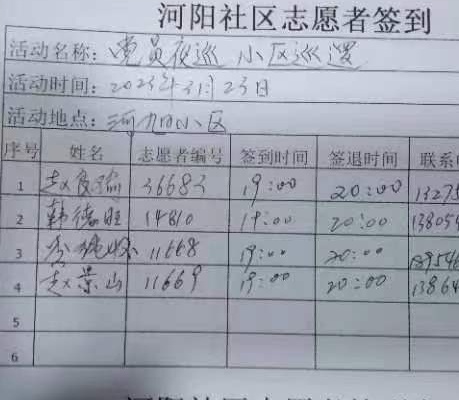 河阳社区志愿者签到
活动名称：党员夜巡 小区巡逻
活动时间：2023年3月23日
活动地点：河阳小区
序号 姓名 志愿者编号 签到时间 签退时间 联系
1 赵 36683 19:00 20:00 13275
2 韩德旺 14810 19:00 20:00 138054
3 11668 19:00 20:00
4 赵景山 11669 19:00 20:00 13864
5
6